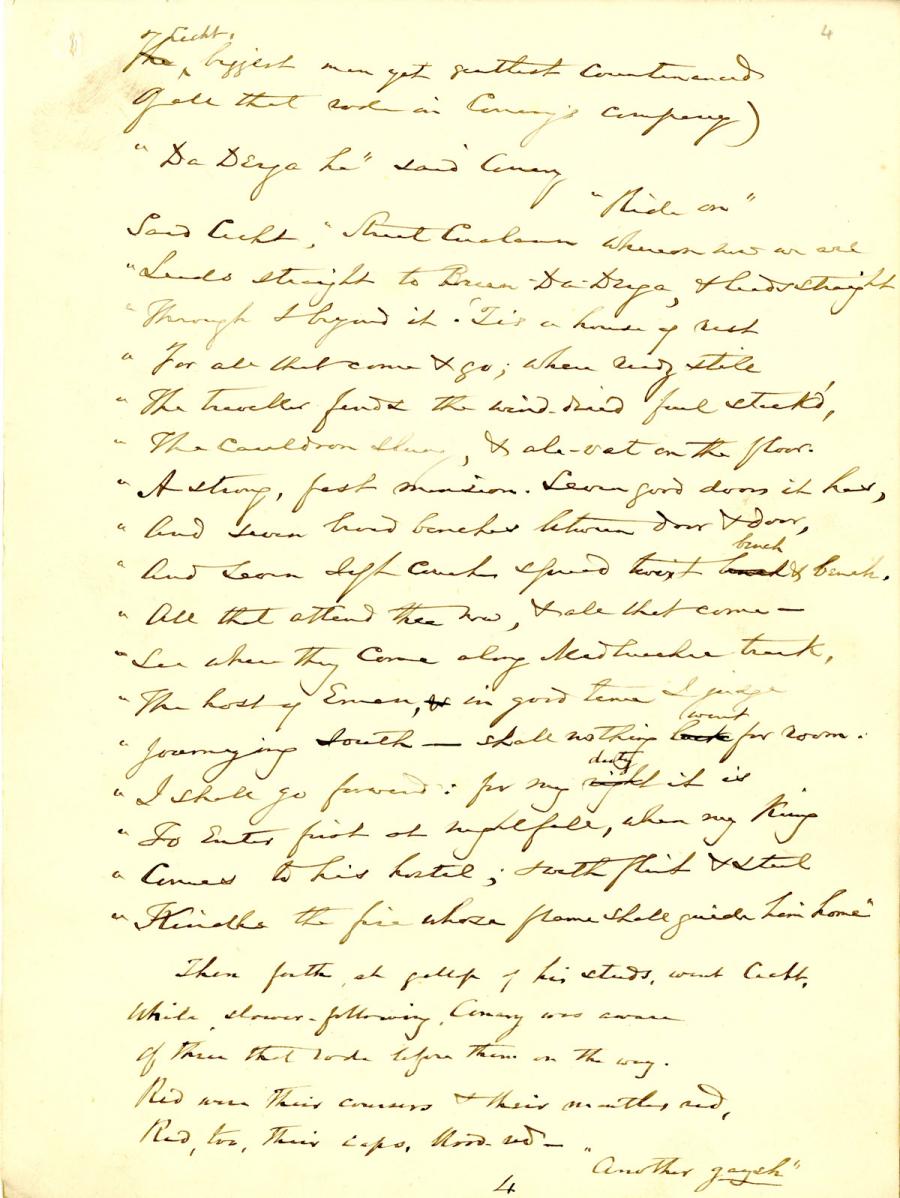 4
Cecht.
The, biggest man yet gentlest countenanced
Of all that rode in Conary's company)
"Da Derga he" said Conary
"Ride on"
Said Cecht, "Street Cualann whereon now we are
"Leads straight to Bruin-Da-Derga, & leads straight
"Through & beyond it. 'Tis a house of rest
"For all that come & go; where ready still
"The traveller finds the wind-dried fuel stack'd,
"The cauldron slung, & ale-vat on the floor.
"A strong, fast mansion. Seven good doors it has,
"And seven hard benches betwixt door & door,
bench
"And seven soft couches spread twixt bench & bench.
"All that attend thee now, & all that come—
"See where they come along Midluachra track,
"The host of Emain, & in good time I judge
want
"Journeying South — shall nothing lack for room.
duty
"I shall go forward: for my right it is
"To enter first at nightfall, when my King
"Comes to his hostel; & with flint & steel
"Kindle the fire whose flame shall guide him home"
Then forth, at gallop of his steeds, went Cecht,
While, slower-following, Conary was aware
Of three that rode before them on the way.
Red were their coursers & their mantles red,
Red, too, their caps, blood-red—
"Another gaysh"
4